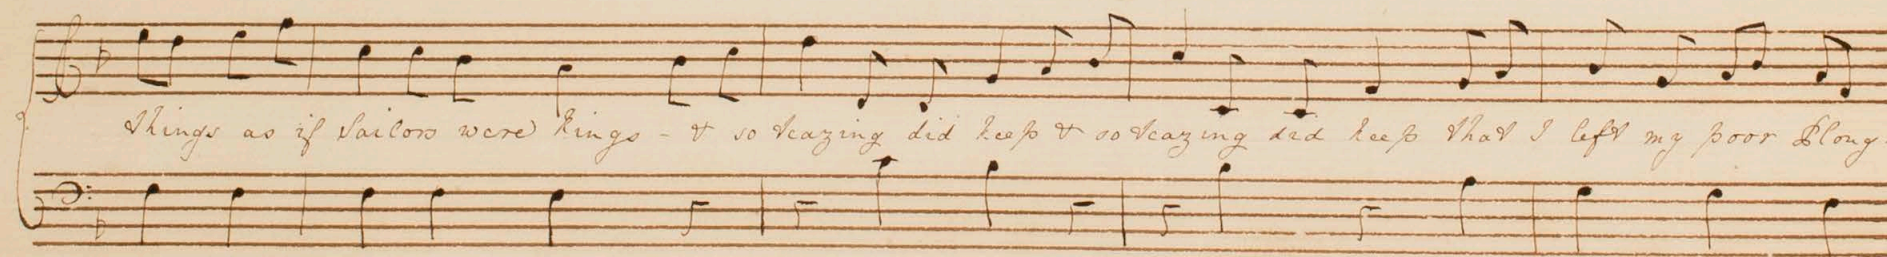 things as if Sailors were kings - & so teazing did keep & so teazing did keep that I left my poor Ploug